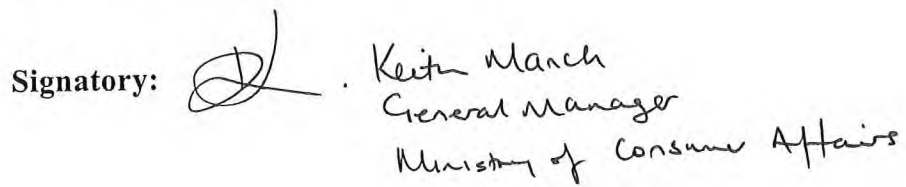 Signatory: . Keith Manch
General Manager
Ministry of Consumer Affairs